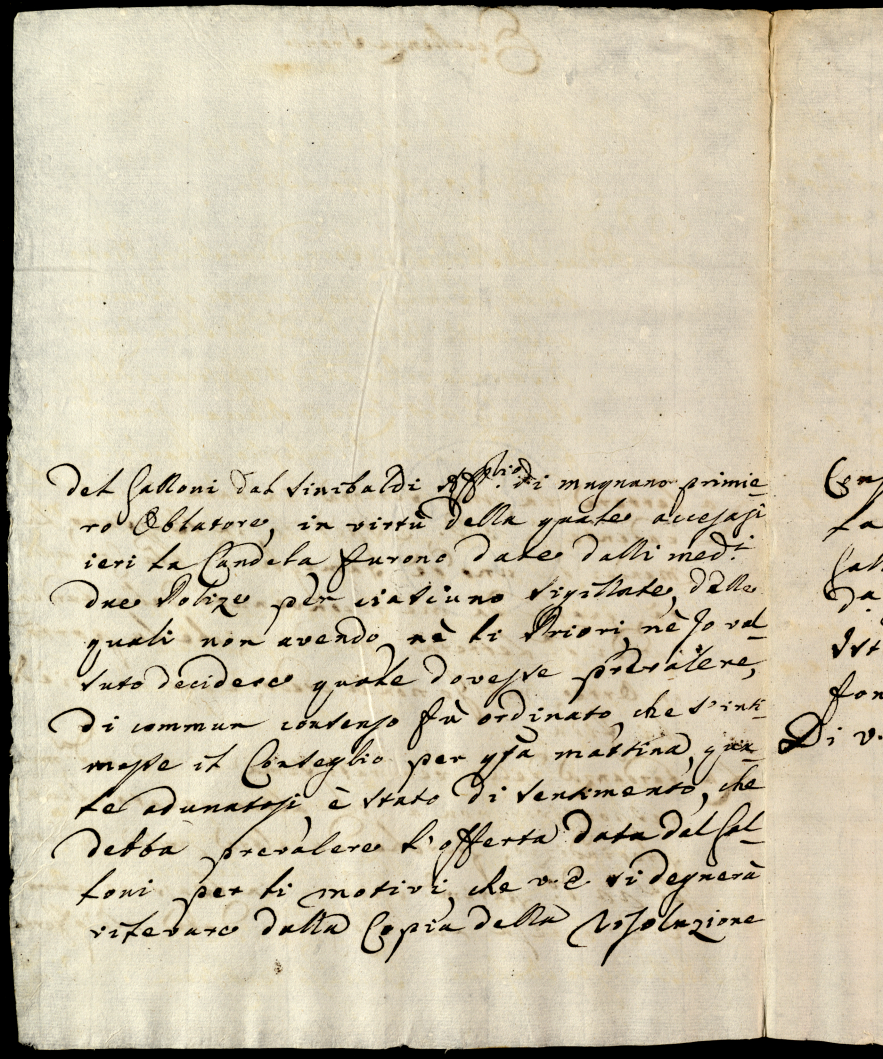 del Galloni dal Sinibaldi Aff.º di mugnano primie-
ro Oblatore, in virtù della quale accesasi
ieri la Candela furono date dalli med.ⁱ
due Polize per ciasciuno sigillate, delle
quali non avendo nè li Priori, nè Io vol-
suto decidere quale dovesse prevalere,
di commun consenso fù ordinato, che s'inti-
masse il Conseglio per q̃sta mattina, qua-
le adunatosi, è stato di sentimento, che
debba prevalere l'offerta data dal Gal-
loni per li motivi, che v. E. si degnerà
rilevare dalla Copia della Risoluzione
la
da
Di v.